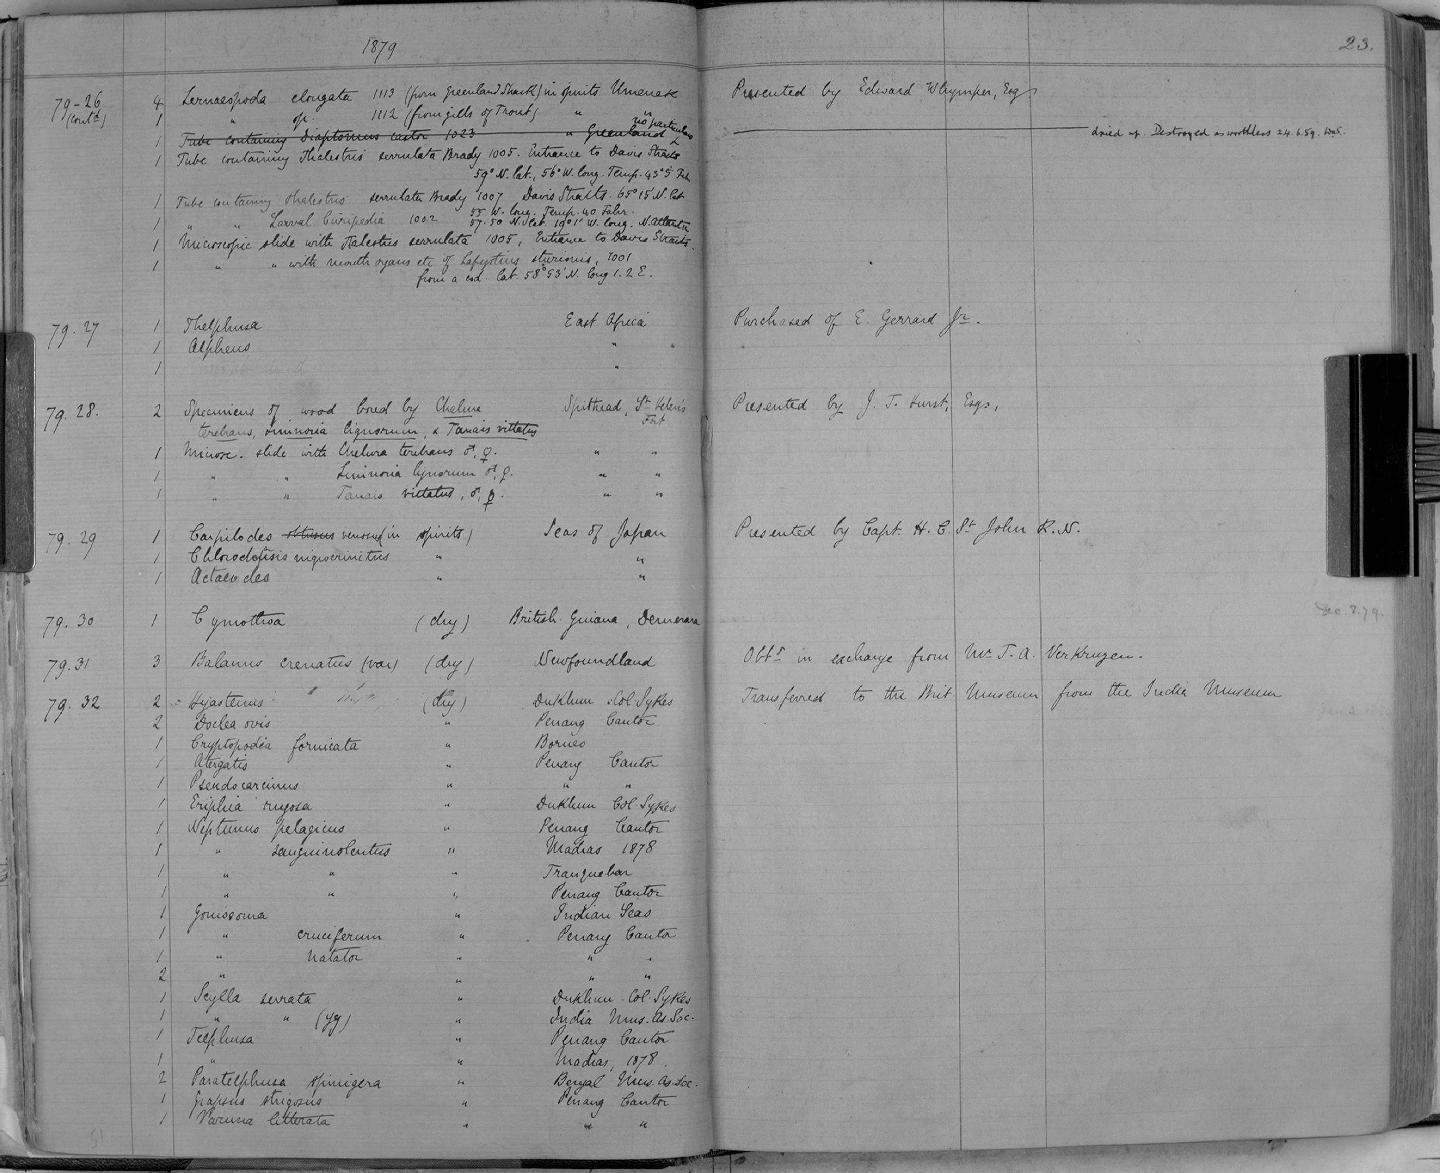 1879
23.
79-26 4 Lernaeopoda elongata 1113 (from Greenland Shark) in spirits Umenak Presented by Edward Whymper, Esq
(contd) 1 " sp. 1112 (from gills of Trout) " "
no particulars
1 Tube containing Diaptomus castor 1023 " Greenland dried up. Destroyed as worthless 24.6.59.
1 Tube containing Thalestris serrulata Brady 1005. Entrance to Davis Straits
59° N. Lat., 56° W. long. Temp. 43°5 Fah
1 Tube containing Thalestris serrulata Brady 1007 Davis Straits. 65°15' N. Lat
55 W. long. Temp. 40 Fahr.
1 " " Larval Cirripedia 1002 57.50 N. Lat. 19°1' W. long. N. Atlantic
1 Microscopic slide with Thalestris serrulata 1005, Entrance to Davis Straits.
1 " " with mouth organs etc of Lepeophtheirus sturionis, 1001
from a cod. Lat. 58°53' N. long 1.2 E.
79.27 1 Thelphusa East Africa Purchased of E. Gerrard Jr.
1 Alpheus " "
1 "
79.28. 2 Specimens of wood bored by Chelura Spithead, St Helen's Presented by J. T. Hurst, Esqr,
terebrans, Limnoria lignorum, & Tanais vittatus Fort
1 Microsc. slide with Chelura terebrans ♂, ♀. " "
1 " " Limnoria lignorum ♂, ♀. " "
1 " " Tanais vittatus, ♂, ♀. " "
79.29 1 Carpilodes obtusus venosus (in spirits) Seas of Japan Presented by Capt. H. C. St John R.N.
1 Chlorodopsis nigrocrinitus " "
1 Actaeodes " "
79.30 1 Cymothoa (dry) British Guiana, Demerara
Dec. 8. 79.
79.31 3 Balanus crenatus (var) (dry) Newfoundland Obtd in exchange from Mr T. A. Verkruzen.
79.32 2 Hyastenus (dry) Dukhun Col. Sykes Transferred to the Brit Museum from the India Museum
2 Doclea ovis " Penang Cantor
1 Cryptopodia fornicata " Borneo
1 Atergatis " Penang Cantor
1 Pseudocarcinus " " "
1 Eriphia rugosa " Dukhun Col. Sykes
1 Neptunus pelagicus " Penang Cantor
1 " sanguinolentus " Madras 1878
1 " " " Tranquebar
1 " " " Penang Cantor
1 Goniosoma " Indian Seas
1 " cruciferum " Penang Cantor
1 " natator " " "
2 " " " "
1 Scylla serrata " Dukhun Col. Sykes
1 " " (yg) " India Mus. As. Soc.
1 Telphusa " Penang Cantor
1 " " Madras, 1878.
2 Paratelphusa spinigera " Bengal Mus. As. Soc.
1 Grapsus strigosus " Penang Cantor
1 Varuna litterata " " "